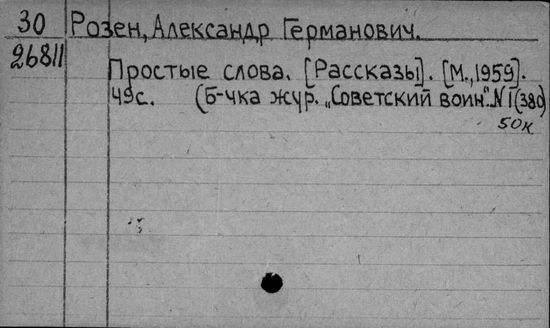 30 Розен, Александр Германович.
26811
Простые слова. [Рассказы]. [М., 1959].
49с. (Б-чка жур. „Советский воин". N 1(380)
50к